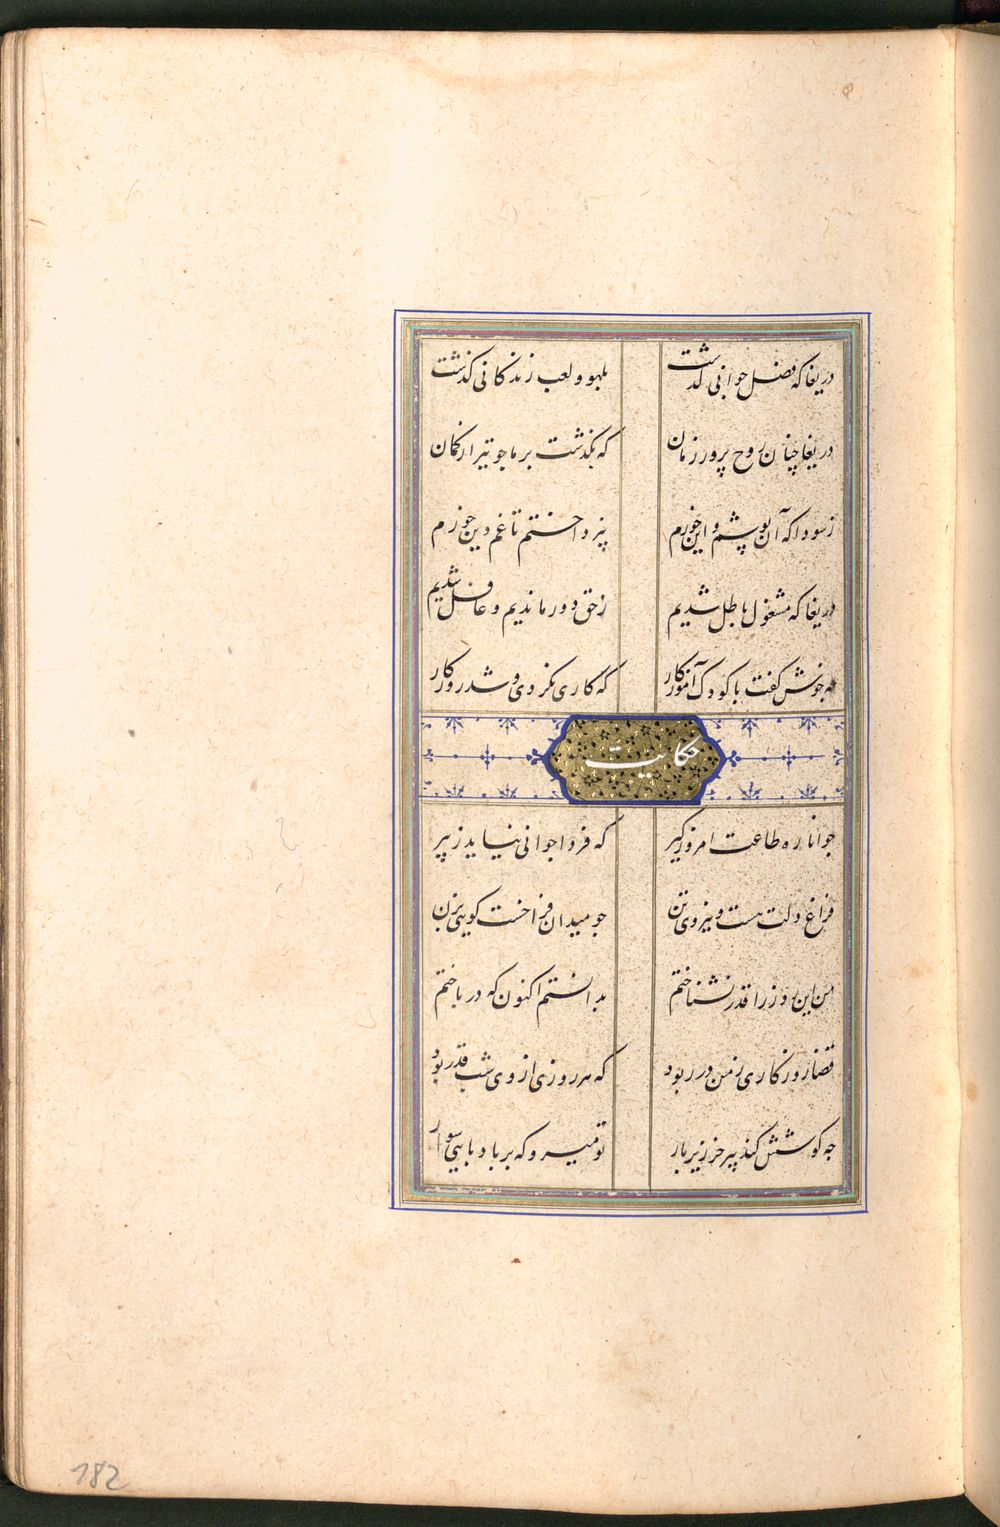 دریغا که فصل جوانی گذشت بلهو و لعب زندگانی گذشت
دریغا چنان روح پرور زمان که بگذشت بر ما چو تیر از کمان
ز سودا که آن پوشم و این خورم نپرداختم تا غم دین خورم
دریغا که مشغول باطل شدیم ز حق دور ماندیم و غافل شدیم
چه خوش گفت با کودک آموزگار که کاری نکردی و شد روزگار
حکایت
جوانا ره طاعت امروز گیر که فردا جوانی نیاید ز پیر
فراغ دلت هست و نیروی تن چو میدان فراخست گویی بزن
من این روز را قدر نشناختم بدانستم اکنون که در باختم
قضا روزگاری ز من در ربود که هر روزی از وی شب قدر بود
چه کوشش کند پیر خر زیر بار تو میرو که بر باد پایی سوار
182